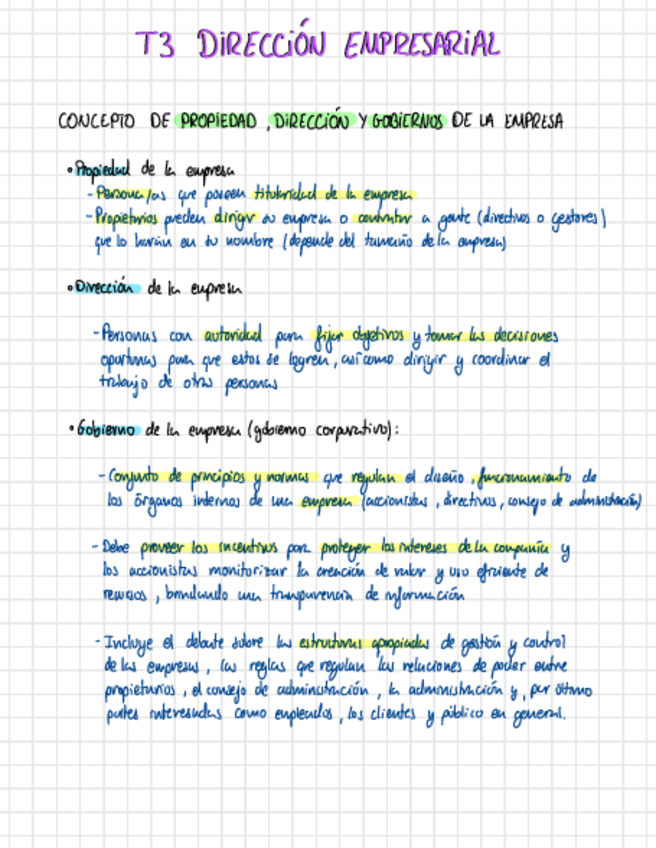 T3 DIRECCIÓN EMPRESARIAL
CONCEPTO DE PROPIEDAD, DIRECCIÓN Y GOBIERNOS DE LA EMPRESA
• Propiedad de la empresa
- Persona/as que poseen titularidad de la empresa
- Propietarios pueden dirigir su empresa o contratar a gente (directivos o gestores)
que lo harán en su nombre (depende del tamaño de la empresa)
• Dirección de la empresa
- Personas con autoridad para fijar objetivos y tomar las decisiones
oportunas para que estos se logren, así como dirigir y coordinar el
trabajo de otras personas
• Gobierno de la empresa (gobierno corporativo):
- Conjunto de principios y normas que regulan el diseño, funcionamiento de
los órganos internos de una empresa (accionistas, directivos, consejo de administración)
- Debe proveer los incentivos para proteger los intereses de la compañía y
los accionistas monitorizar la creación de valor y uso eficiente de
recursos, brindando una transparencia de información
- Incluye el debate sobre las estructuras apropiadas de gestión y control
de las empresas, las reglas que regulan las relaciones de poder entre
propietarios, el consejo de administración, la administración y, por último
partes interesadas como empleados, los clientes y público en general.